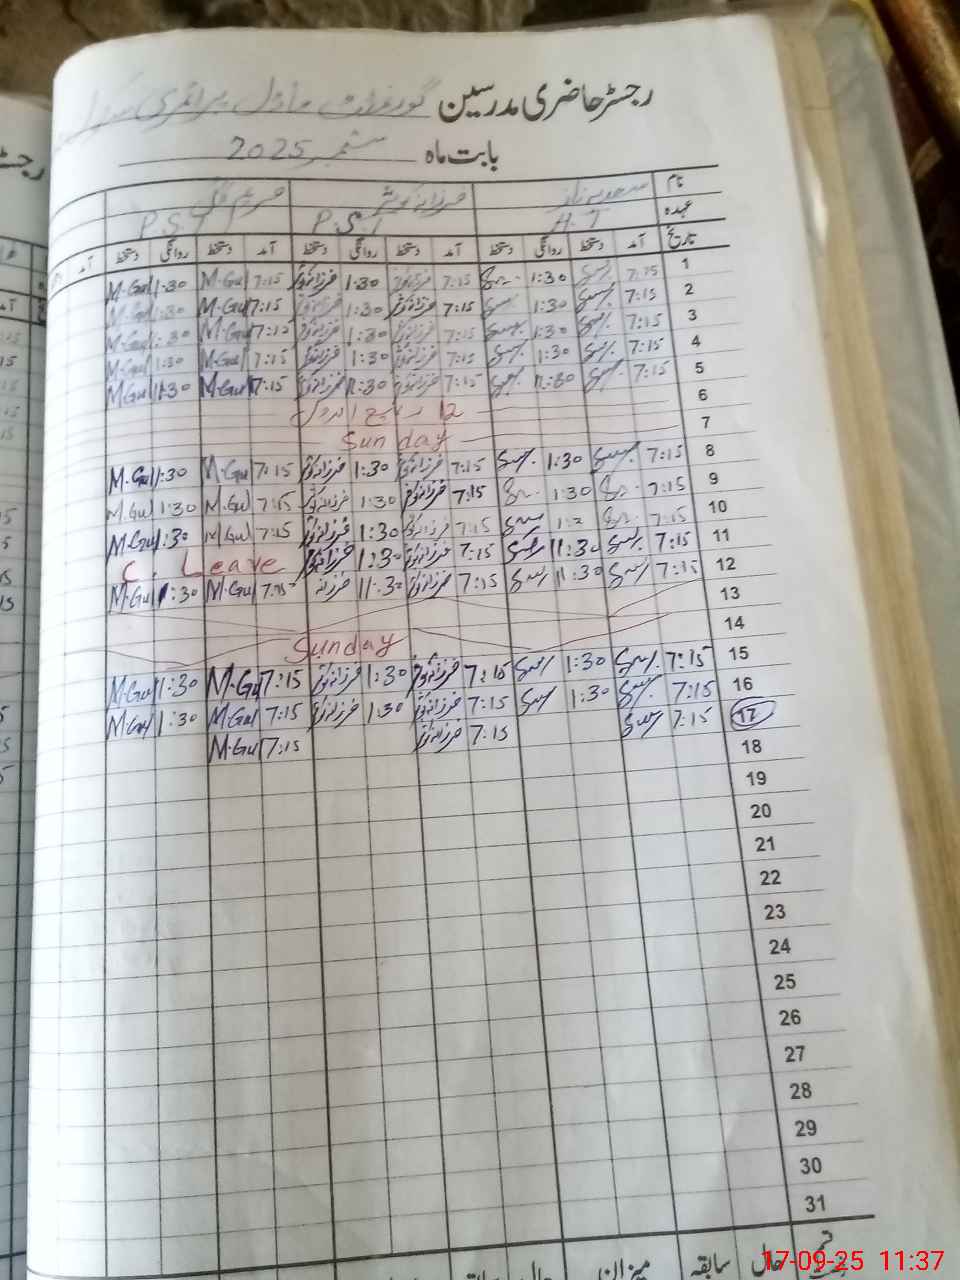 رجسٹر حاضری مدرسین گورنمنٹ ماڈل پرائمری سکول
بابت ماہ ستمبر 2025
نام سعدیہ ناز فرزانہ کوثر مریم گل
عہدہ H.T P.S.T P.S.T
تاریخ آمد دستخط روانگی دستخط آمد دستخط روانگی دستخط آمد دستخط روانگی دستخط آمد
1 7:15 1:30 7:15 فرزانہ کوثر 1:30 فرزانہ کوثر 7:15 M.Gul 1:30 M.Gul
2 7:15 1:30 7:15 فرزانہ کوثر 1:30 فرزانہ کوثر 7:15 M.Gul 1:30 M.Gul
3 7:15 1:30 7:15 فرزانہ کوثر 1:30 فرزانہ کوثر 7:15 M.Gul 1:30 M.Gul
4 7:15 1:30 7:15 فرزانہ کوثر 1:30 فرزانہ کوثر 7:15 M.Gul 1:30 M.Gul
5 7:15 11:30 7:15 فرزانہ کوثر 11:30 فرزانہ کوثر 7:15 M.Gul 11:30 M.Gul
6 12 ربیع الاول
7 Sunday
8 7:15 1:30 7:15 فرزانہ کوثر 1:30 فرزانہ کوثر 7:15 M.Gul 1:30 M.Gul
9 7:15 1:30 7:15 فرزانہ کوثر 1:30 فرزانہ کوثر 7:15 M.Gul 1:30 M.Gul
10 7:15 7:15 فرزانہ کوثر 1:30 فرزانہ کوثر 7:15 M.Gul 1:30 M.Gul
11 7:15 11:30 7:15 فرزانہ کوثر 1:30 فرزانہ کوثر C. Leave
12 7:15 11:30 7:15 فرزانہ کوثر 11:30 فرزانہ 7:15 M.Gul 1:30 M.Gul
13
14 Sunday
15 7:15 1:30 7:15 فرزانہ کوثر 1:30 فرزانہ کوثر 7:15 M.Gul 1:30 M.Gul
16 7:15 1:30 7:15 فرزانہ کوثر 1:30 فرزانہ کوثر 7:15 M.Gul 1:30 M.Gul
17 7:15 7:15 فرزانہ کوثر 7:15 M.Gul
18
19
20
21
22
23
24
25
26
27
28
29
30
31
سابقہ حال میزان
17-09-25 11:37